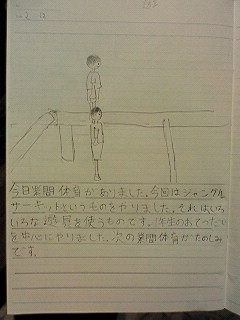 今日業間体育がありました。今回はジャングル
サーキットというものをやりました。それはいろ
いろな遊具を使うものです。1年生のおてつだい
を中心にやりました。次の業間体育がたのしみ
です。